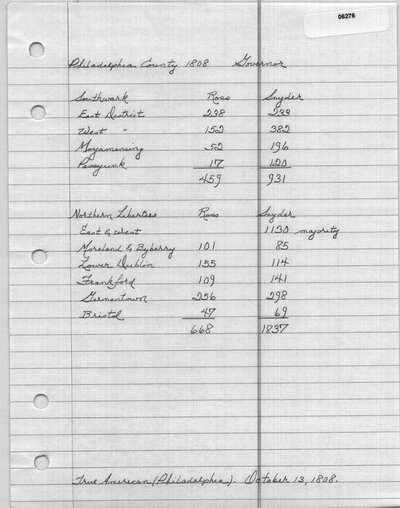 06276
Philadelphia County 1808 Governor
Southwark Ross Snyder
East District 238 233
West " 152 382
Moyamensing 52 196
Passyunk 17 120
459 931
Northern Liberties Ross Snyder
East & West 1130 majority
Moreland & Byberry 101 85
Lower Dublin 155 114
Frankford 109 141
Germantown 256 298
Bristol 47 69
668 1837
True American (Philadelphia). October 13, 1808.